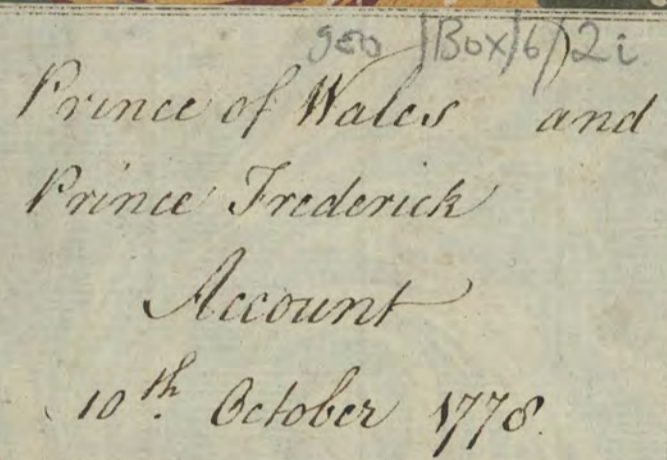 geo/Box/6/2i
Prince of Wales and
Prince Frederick
Account
10th. October 1778.